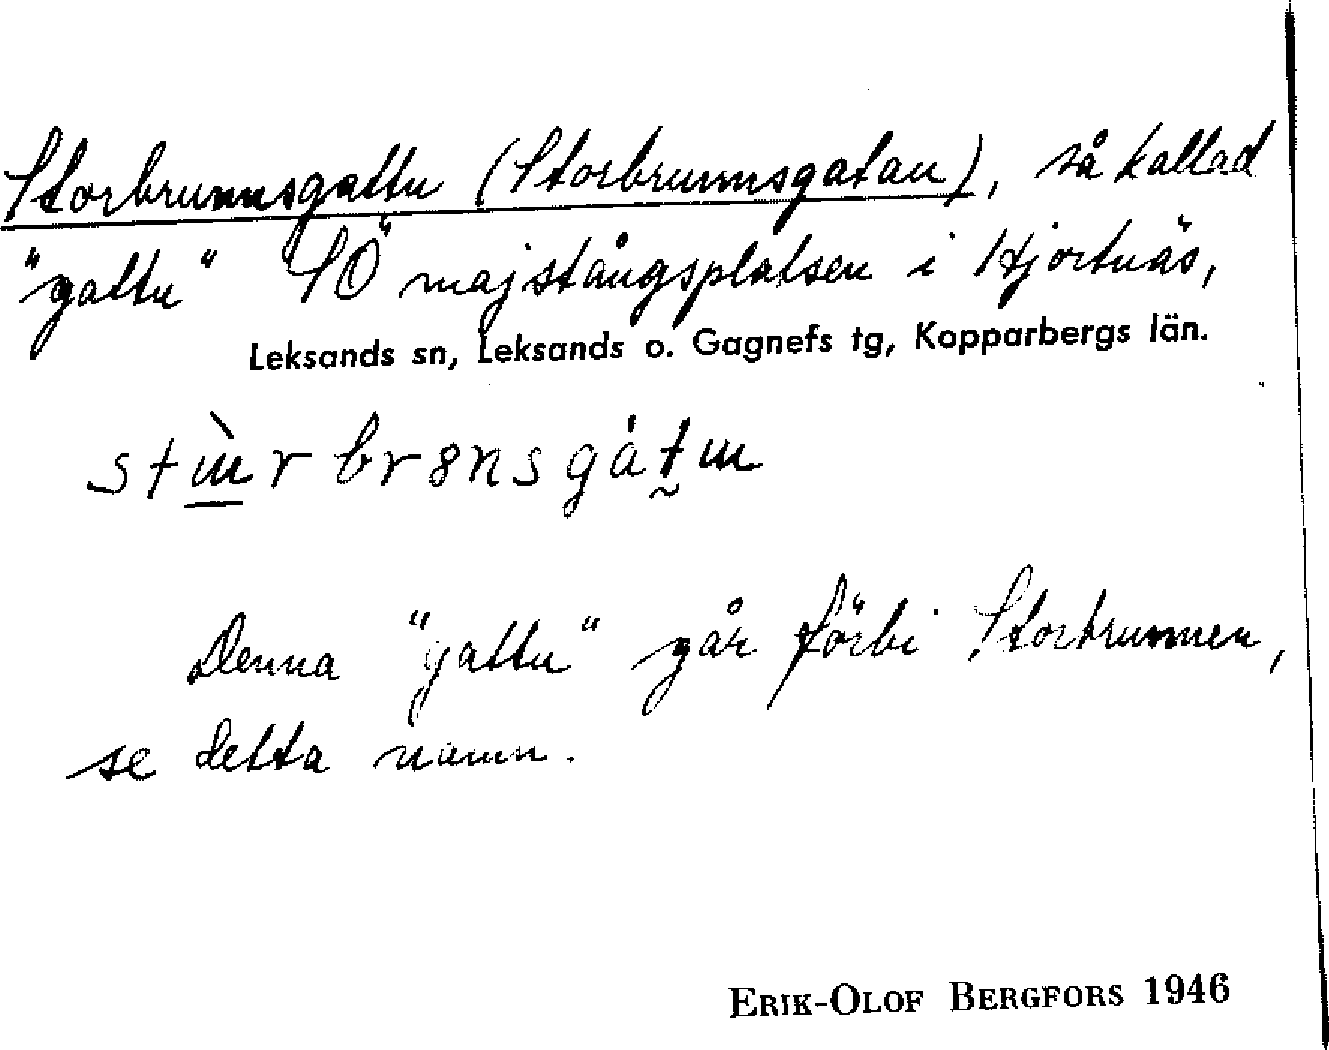 Storbrunnsgattu (Storbrunnsgatan), så kallad
"gattu" SÖ majstångsplatsen i Hjortnäs,
Leksands sn, Leksands o. Gagnefs tg, Kopparbergs län.
Denna "gattu" går förbi Storbrunnen,
se detta namn.
ERIK-OLOF BERGFORS 1946